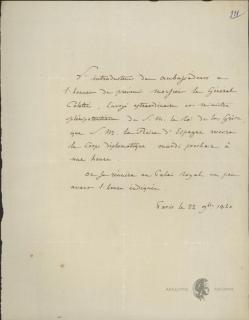 L'introducteur des ambassadeurs a
l'honneur de prévenir monsieur le Général
Coletti, Envoyé extraordinaire et ministre
plénipotentiaire de S. M. le Roi de la Grèce
que S. M. la Reine d'Espagne recevra
le Corps diplomatique mardi prochain à
une heure
on se réunira au Palais royal, un peu
avant l'heure indiquée.
Paris le 22 9bre